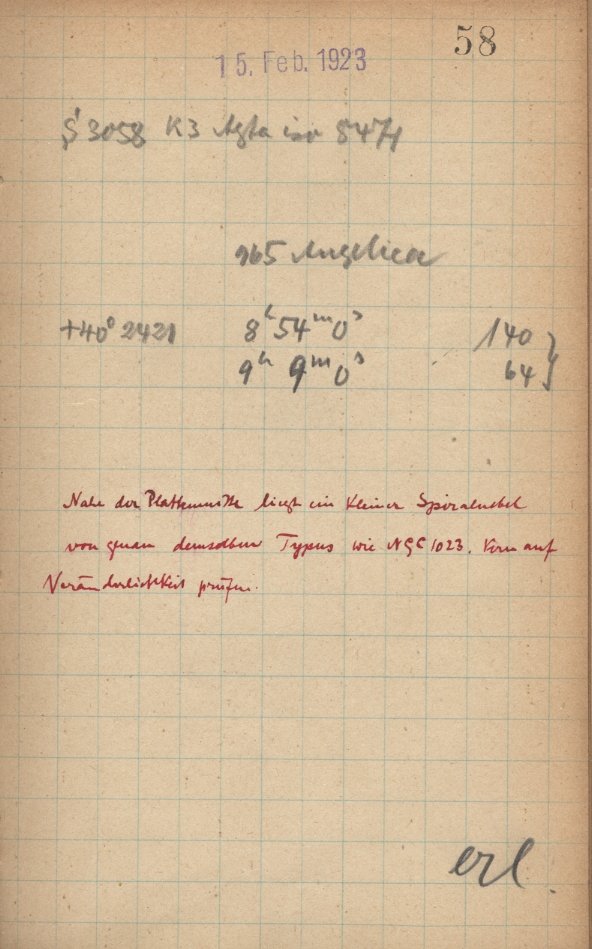 58
15. Feb. 1923
S 3058 K3 Agfa iso 5474
965 Angelica
+40° 2421 8ʰ 54ᵐ 0ˢ 140
9ʰ 9ᵐ 0ˢ 64
Nahe der Plattenmitte liegt ein kleiner Spiralnebel
von genau demselben Typus wie NGC 1023. Kern auf
Veränderlichkeit prüfen.
erl.